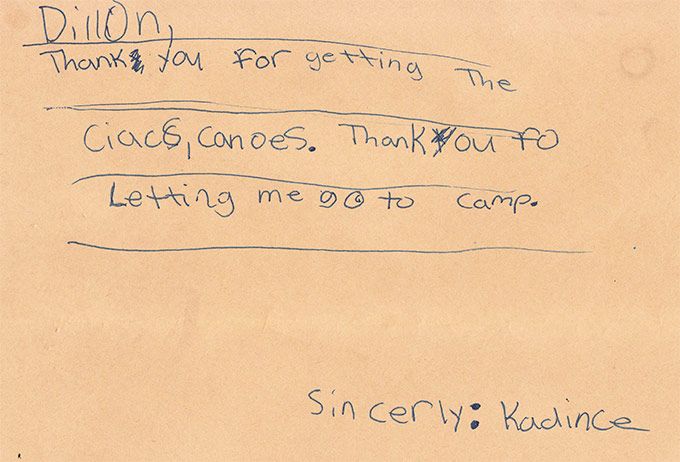 Dillon,
Thank you for getting The
Ciacs, canoes. Thank You fo
Letting me go to camp.
Sincerly: Kadince